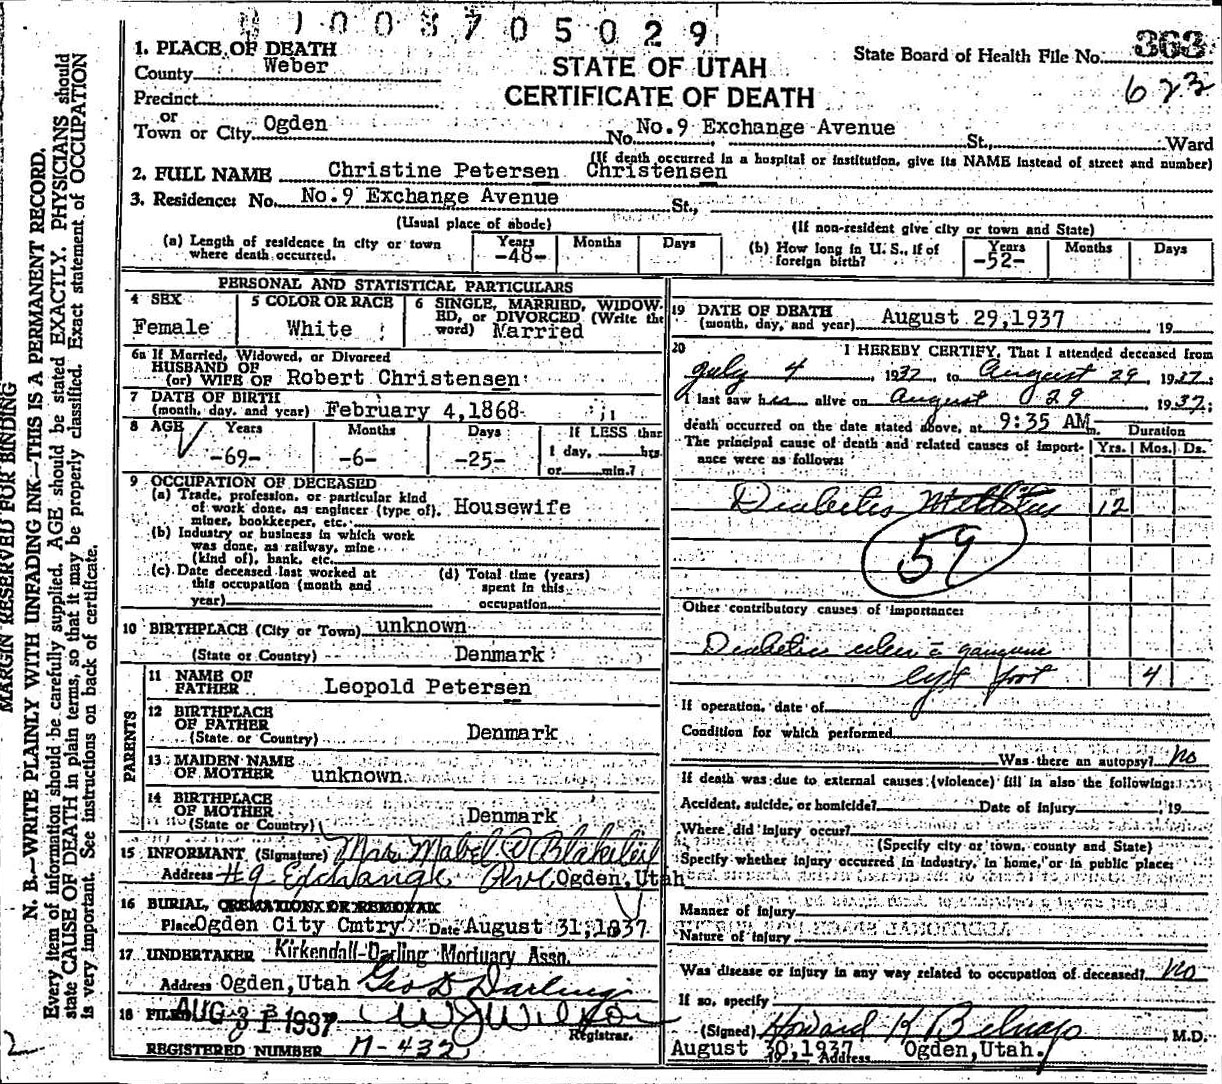 1003705029
1. PLACE OF DEATH
County Weber
STATE OF UTAH
State Board of Health File No. 363
623
Precinct
CERTIFICATE OF DEATH
or
Town or City Ogden No. No.9 Exchange Avenue St., Ward
(If death occurred in a hospital or institution, give its NAME instead of street and number)
2. FULL NAME Christine Petersen Christensen
3. Residence: No. No.9 Exchange Avenue St.,
(Usual place of abode) (If non-resident give city or town and State)
(a) Length of residence in city or town where death occurred. Years -48- Months Days
(b) How long in U. S., if of foreign birth? Years -52- Months Days
PERSONAL AND STATISTICAL PARTICULARS
4 SEX Female
5 COLOR OR RACE White
6 SINGLE, MARRIED, WIDOWED, or DIVORCED (Write the word) Married
6a If Married, Widowed, or Divorced
HUSBAND OF
(or) WIFE OF Robert Christensen
7 DATE OF BIRTH
(month, day, and year) February 4,1868
8 AGE Years -69- Months -6- Days -25- If LESS than 1 day, hrs. or min.?
9 OCCUPATION OF DECEASED
(a) Trade, profession, or particular kind
of work done, as engineer (type of), Housewife
miner, bookkeeper, etc.
(b) Industry or business in which work
was done, as railway, mine
(kind of), bank, etc.
(c) Date deceased last worked at
this occupation (month and
year)
(d) Total time (years)
spent in this
occupation
10 BIRTHPLACE (City or Town) unknown
(State or Country) Denmark
PARENTS
11 NAME OF
FATHER Leopold Petersen
12 BIRTHPLACE
OF FATHER
(State or Country) Denmark
13 MAIDEN NAME
OF MOTHER unknown
14 BIRTHPLACE
OF MOTHER
(State or Country) Denmark
15 INFORMANT (Signature) Mrs. Mabel Blakeley
Address #9 Exchange Ave Ogden, Utah
16 BURIAL, CREMATION OR REMOVAL
Place Ogden City Cmtry Date August 31,1937
17 UNDERTAKER Kirkendall-Darling Mortuary Assn.
Address Ogden,Utah Geo D Darling
18 FILED AUG 31 1937
Registrar.
REGISTERED NUMBER M-432
19 DATE OF DEATH
(month, day, and year) August 29,1937 19
20 I HEREBY CERTIFY, That I attended deceased from
July 4 1937 to August 29 1937
I last saw her alive on August 29 1937
death occurred on the date stated above, at 9:35 AM m.
Duration
The principal cause of death and related causes of importance were as follows: Yrs. Mos. Ds.
Diabetes Mellitus 12
59
Other contributory causes of importance:
Diabetic ulcer c̄ gangrene
left foot 4
If operation, date of
Condition for which performed
Was there an autopsy? No
If death was due to external causes (violence) fill in also the following:
Accident, suicide, or homicide? Date of injury 19
Where did injury occur?
(Specify city or town, county and State)
Specify whether injury occurred in industry, in home, or in public place:
Manner of injury
Nature of injury
Was disease or injury in any way related to occupation of deceased? No
If so, specify
(Signed) Howard K Belnap M.D.
August 30,1937 19 Address Ogden,Utah.
MARGIN RESERVED FOR BINDING
N. B.—WRITE PLAINLY WITH UNFADING INK—THIS IS A PERMANENT RECORD.
Every item of information should be carefully supplied. AGE should be stated EXACTLY. PHYSICIANS should
state CAUSE OF DEATH in plain terms, so that it may be properly classified. Exact statement of OCCUPATION
is very important. See instructions on back of certificate.
2